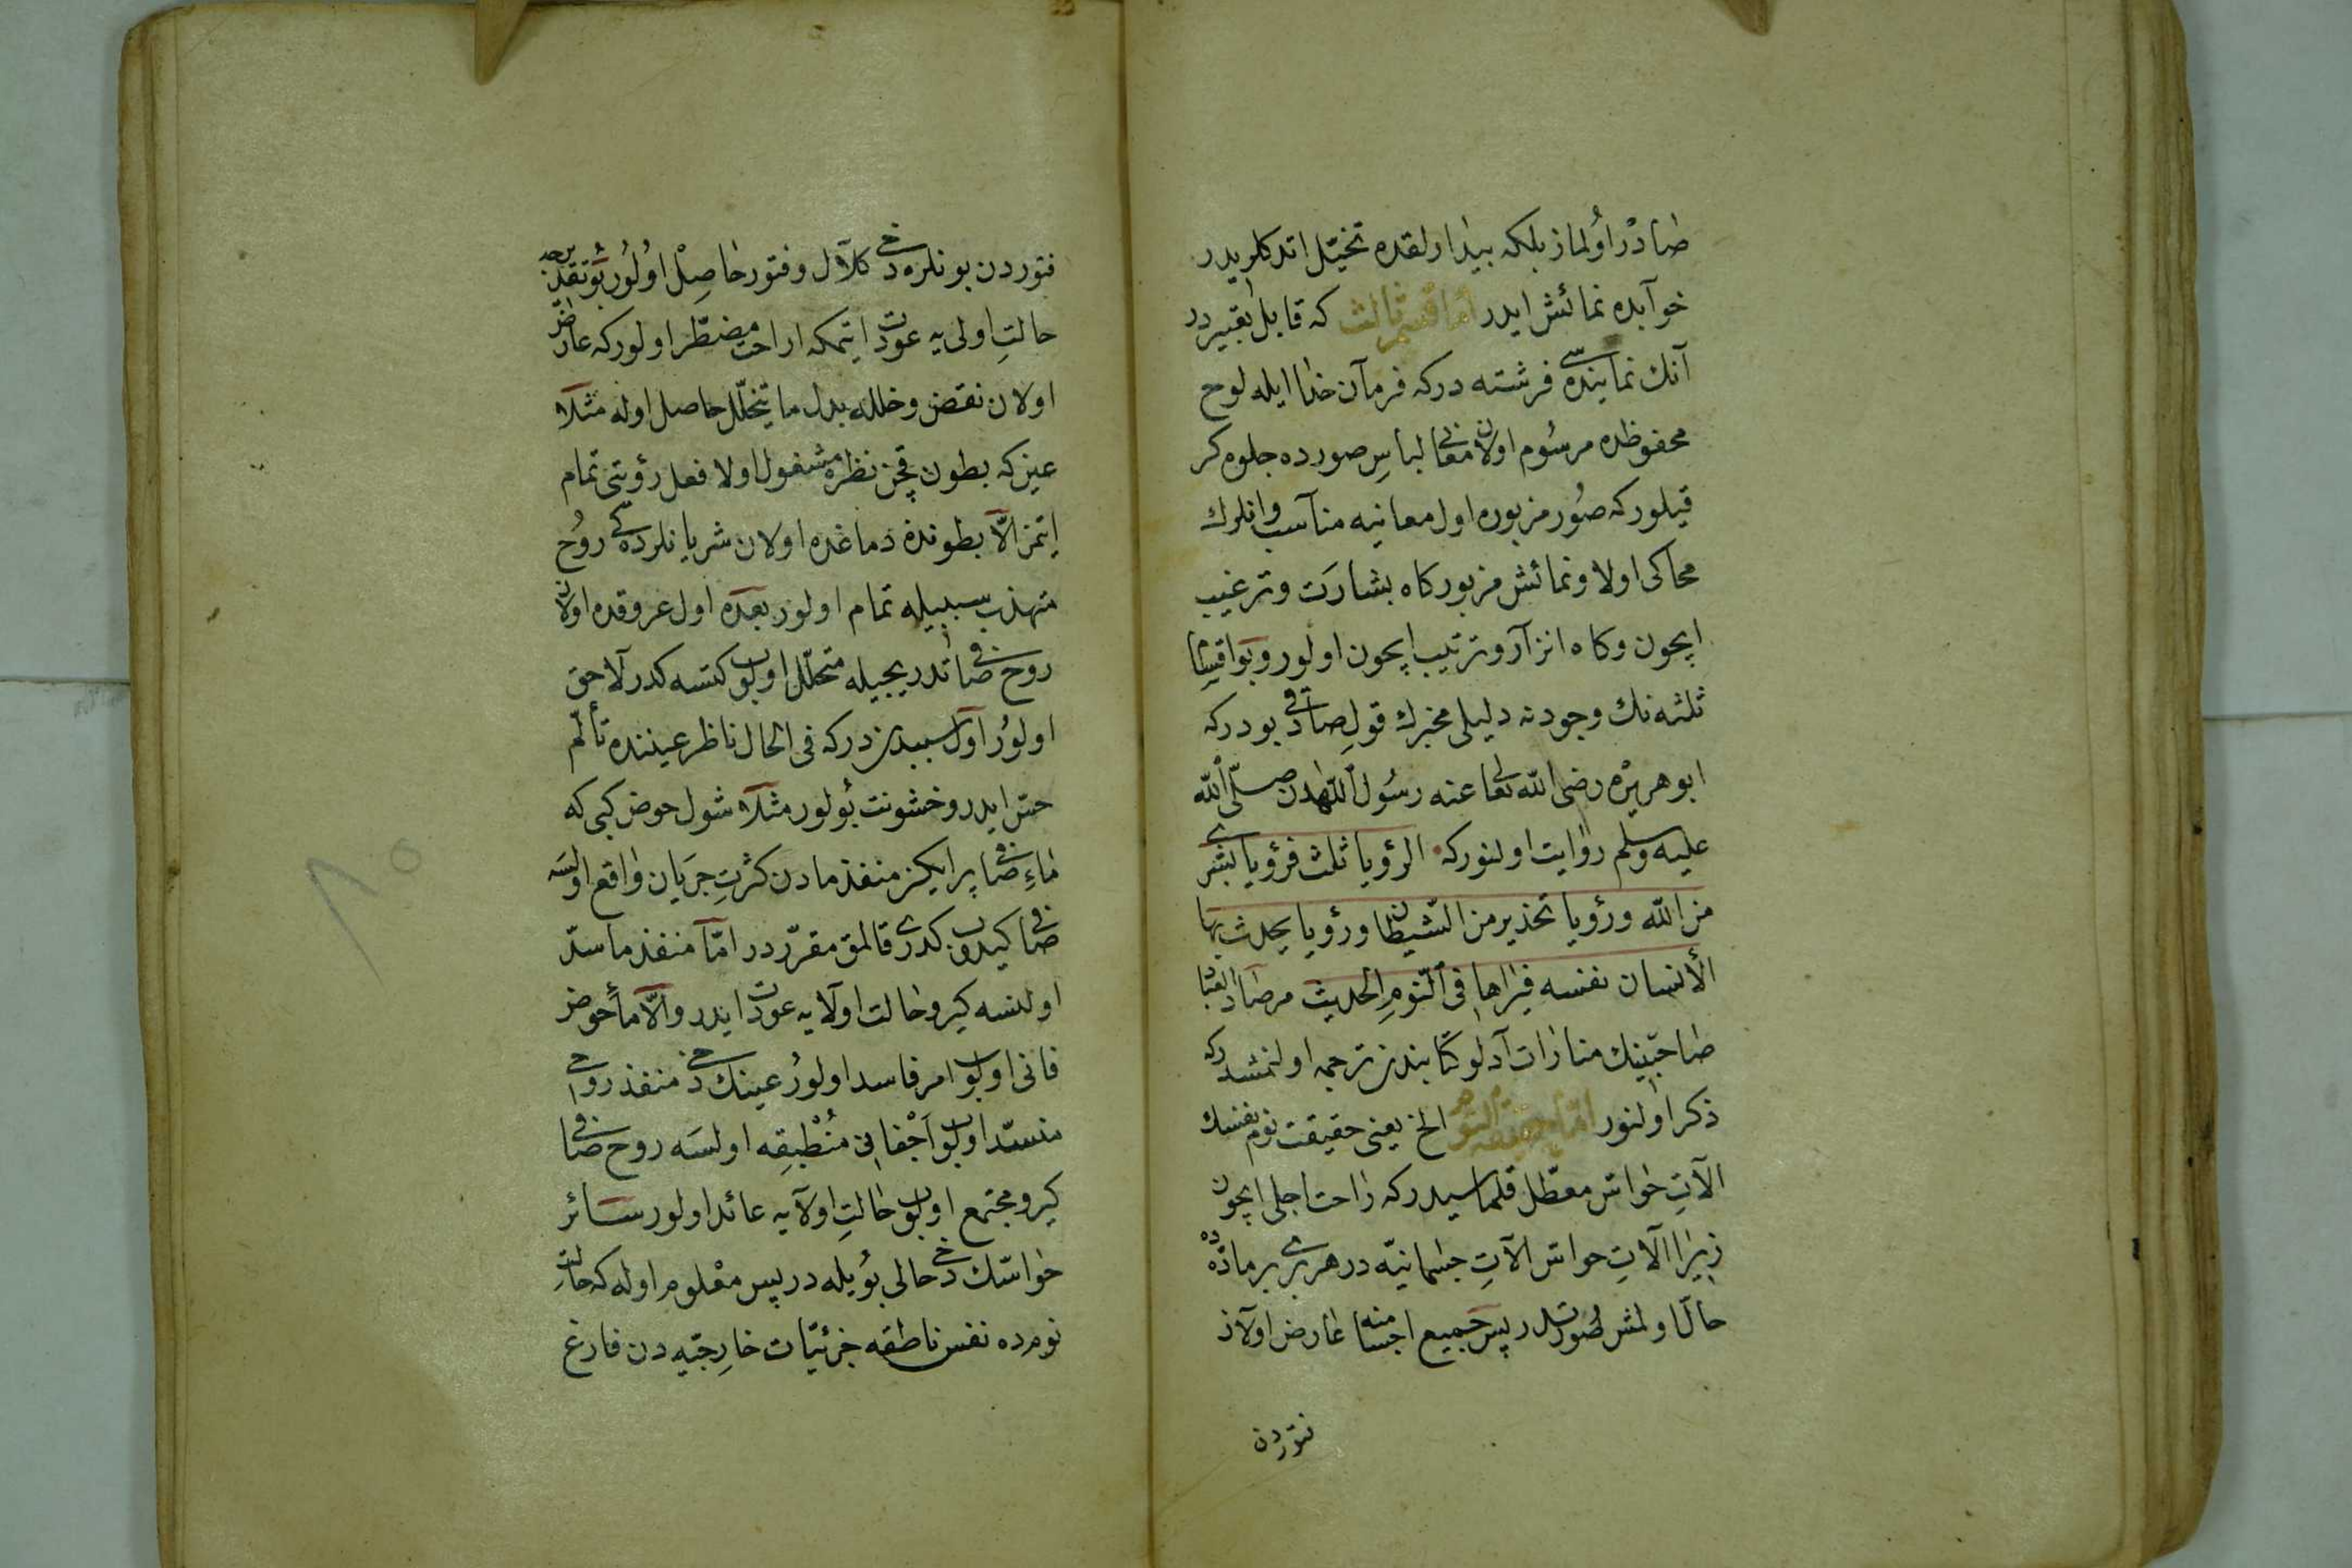 صادر اولماز بلكه بيدارلقده تخيّل اتدكلريدر
خوآبده نمائش ايدر امّا قسم ثالث كه قابل تعبيردر
آنك نماينده‌سى فرشته دركه فرمآن خدا ايله لوح
محفوظده مرسُوم اولان معانى لباسِ صورده جلوه‌كر
قيلوركه صُور مزبوره اول معانيه مناسب وانلرك
محاكى اولا ونمائش مزبور كاه بشارَت وترغيب
ايچون وكاه انزآر وترتيب ايچون اولور وبو اقسام
ثلثه‌نك وجودنه دليلى مخبرك قولِ صادقى بودركه
ابو هريرْه رضى الله تعالى عنه رسُول اللهدن صلّى الله
عليه وسلم روايت اولنوركه الرؤيا ثلث فرؤيا بشرى
من الله ورؤيا تحذير من الشّيطان ورؤيا يحدث بها
الأنسان نفسه فيراها فى النّومِ الحديث مرصاد العباد
صاحبينك منازات آدلو كتابندن ترجمه اولنمشدركه
ذكر اولنور امّا حقيقة النّوم الخ يعنى حقيقت نوم نفسك
الآتِ حواسّ معطّل قلماسيدركه راحت اجلى ايچون
زيرا الآتِ حواس الآتِ جسمانيّه در هر برى بر مادّه‌ده
حالّ اولمش صُورتدر پس جميع اجسامنه عارض اولان
فتوردن
فتوردن بونلره دخى كلآل وفتور حاصِلْ اولُور بُو تقديرجه
حالتِ اولى يه عودت ايتمكه اراحت مضطّر اولوركه عارض
اولان نقض وخلله بدل ما يتحلّل حاصل اوله مثلا
عين كه بطون قچن نظره مشغول اولا فعل رؤيتى تمام
ايتمز الاّ بطوننده دماغده اولان شريانلرده‌كى روُح
متهذب سببيله تمام اولور بعده اول عروقده اولان
روح صافى تدريجيله متحلّل اولوب كتسه كدر لآحق
اولوُر اول سببدن دركه فى الحال ناظر عيننده تألّم
حسّ ايدر وخشونت بُولور مثلا شول حوض كبى كه
ماءِ صافى پر ايكن منفذ مادن كثرتِ جرَيان واقع اولسَه
صافى كيدوب كدرى قالمق مقرّردر امّا منفذ ما سدّ
اولنسه كيرو حالت اولآيه عودت ايدر والاّ مأ حوض
فانى اولوب امر فاسد اولوُر عينك دخى منفذ روحى
منسدّ اولوب اَجْفانى مُنْطبِقِه اولسَه روح صافى
كيرو مجتمع اولوب حالتِ اولآيه عائد اولور سائر
حواسّك دخى حالى بوُيله در پس معْلوم اوله كه حالتِ
نومده نفس ناطقه جزئيّات خارِجيّه دن فارغ